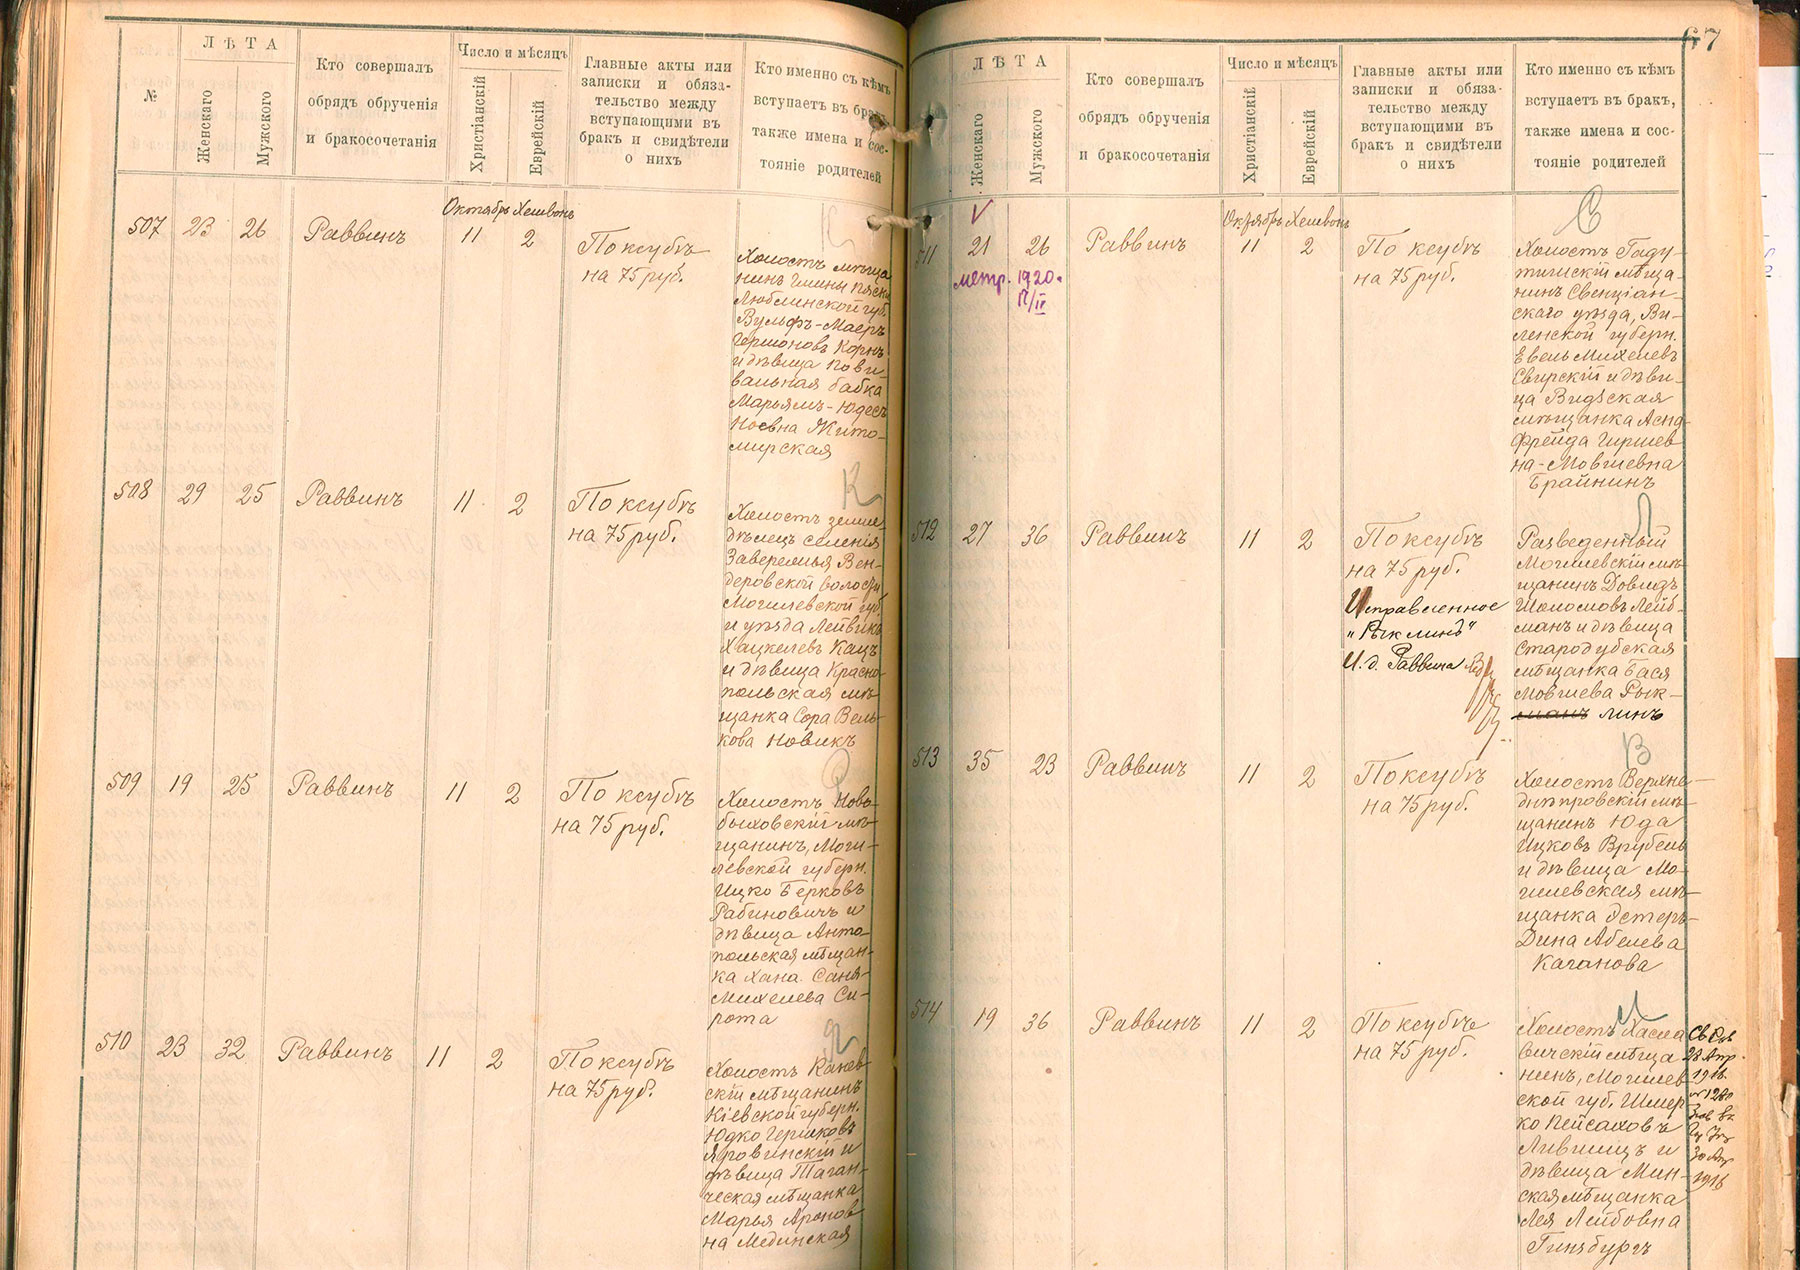 №
ЛѢТА
Женскаго
Мужского
Кто совершалъ
обрядъ обрученія
и бракосочетанія
Число и мѣсяцъ
Христіанскій
Еврейскій
Главные акты или
записки и обяза-
тельство между
вступающими въ
бракъ и свидѣтели
о нихъ
Кто именно съ кѣмъ
вступаетъ въ брак
также имена и сос-
тояніе родителей
Октябрь Хешвонъ
507 23 26 Раввинъ 11 2
По ксубѣ
на 75 руб.
К
Холостъ мѣща
нинъ Гмины Пяски
Люблинской губ.
Вульфъ-Маеръ
Гершоновъ Корнъ
и дѣвица пови-
вальная бабка
Марьямъ-Юдесъ
Ноевна Жито-
мирская
508 29 25 Раввинъ 11 2
По ксубѣ
на 75 руб.
К
Холостъ земле-
дѣлецъ селенія
Заверемья Вен-
деровской волости
Могилевской губ.
и уѣзда Лейвикъ
Хацкелевъ Кацъ
и дѣвица Красно
польская мѣ-
щанка Сора Вель-
кова Новикъ
509 19 25 Раввинъ 11 2
По ксубѣ
на 75 руб.
Р
Холостъ Ново-
быховскій мѣ-
щанинъ, Моги-
левской губерн.
Ицко Берковъ
Рабиновичъ и
дѣвица Анто-
польская мѣщан-
ка Хана Саня-
Михелева Си-
рота
510 23 32 Раввинъ 11 2
По ксубѣ
на 75 руб.
Я
Холостъ Канев-
скій мѣщанинъ
Кіевской губерн.
Юдко Гершковъ
Яровинскій и
дѣвица Таган-
ческая мѣщанка
Марья Аронов
на Мединская
67
ЛѢТА
Женскаго
Мужского
Кто совершалъ
обрядъ обрученія
и бракосочетанія
Число и мѣсяцъ
Христіанскій
Еврейскій
Главные акты или
записки и обяза-
тельство между
вступающими въ
бракъ и свидѣтели
о нихъ
Кто именно съ кѣмъ
вступаетъ въ бракъ,
также имена и сос-
тояніе родителей
Октябрь Хешвонъ
511 21 26 Раввинъ 11 2
метр. 1920.
По ксубѣ
на 75 руб.
С
Холостъ Гаду-
тишскій мѣща-
нинъ Свенціан-
скаго уѣзда, Ви-
ленской губерн.
Евель Михелевъ
Свирскій и дѣви-
ца Видзская
мѣщанка Асна-
Фрейда Гиршев
на-Мовшевна
Брайнинъ
512 27 36 Раввинъ 11 2
По ксубѣ
на 75 руб.
Исправленное
„Рыклинъ"
И. д. Раввина
Л
Разведенный
Могилевскій мѣ-
щанинъ Довидъ
Шоломовъ Лейб-
манъ и дѣвица
Стародубская
мѣщанка Бася
Мовшева Рык-
манъ линъ
513 35 23 Раввинъ 11 2
По ксубѣ
на 75 руб.
В
Холостъ Верхне-
днѣпровскій мѣ-
щанинъ Юда
Ицковъ Врубель
и дѣвица Мо-
гилевская мѣ-
щанка Эстеръ-
Дина Абелева
Каганова
514 19 36 Раввинъ 11 2
По ксубѣ
на 75 руб.
Холостъ Хасла
вичскій мѣща
нинъ, Могилев
ской губ. Шмер
ко Пейсаховъ
Лившицъ и
дѣвица Мин-
ская мѣщанка
Лея Лейбовна
Гинзбургъ
28 Апр
1916
30 Апр
1916